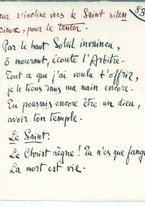 eur s'incline vers le Saint silen
cieux, pour le tenter.
Par le haut Soleil invaincu,
ô mourant, écoute l'Arbitre.
Tout ce que j'ai voulu t'offrir,
je le tiens dans ma main encore.
Tu pourrais encore être un dieu,
avoir ton temple.
Le Saint.
Le Christ règne! Tu n'es que fange
La mort est vie.